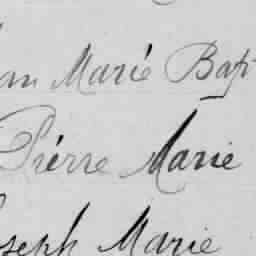 an Marié Bapt
Piérre Marie
oseph Marie